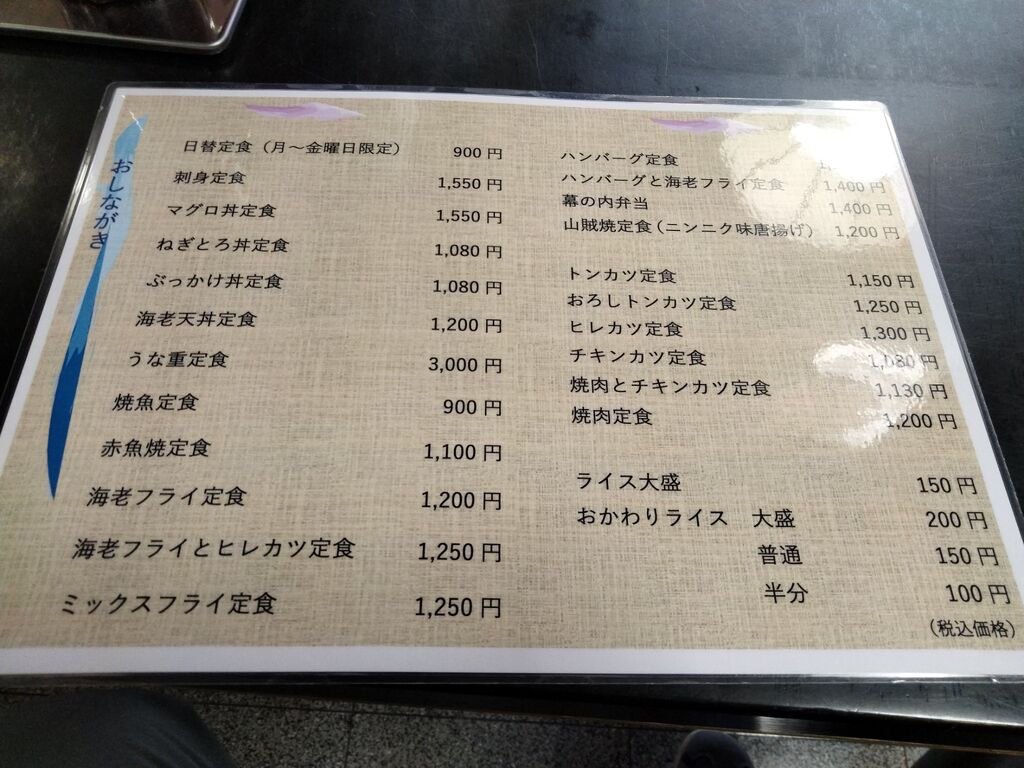 おしながき
日替定食（月～金曜日限定） 900 円
刺身定食 1,550 円
マグロ丼定食 1,550 円
ねぎとろ丼定食 1,080 円
ぶっかけ丼定食 1,080 円
海老天丼定食 1,200 円
うな重定食 3,000 円
焼魚定食 900 円
赤魚焼定食 1,100 円
海老フライ定食 1,200 円
海老フライとヒレカツ定食 1,250 円
ミックスフライ定食 1,250 円
ハンバーグ定食
ハンバーグと海老フライ定食 1,400 円
幕の内弁当 1,400 円
山賊焼定食（ニンニク味唐揚げ） 1,200 円
トンカツ定食 1,150 円
おろしトンカツ定食 1,250 円
ヒレカツ定食 1,300 円
チキンカツ定食 1,080 円
焼肉とチキンカツ定食 1,130 円
焼肉定食 1,200 円
ライス大盛 150 円
おかわりライス 大盛 200 円
普通 150 円
半分 100 円
（税込価格）